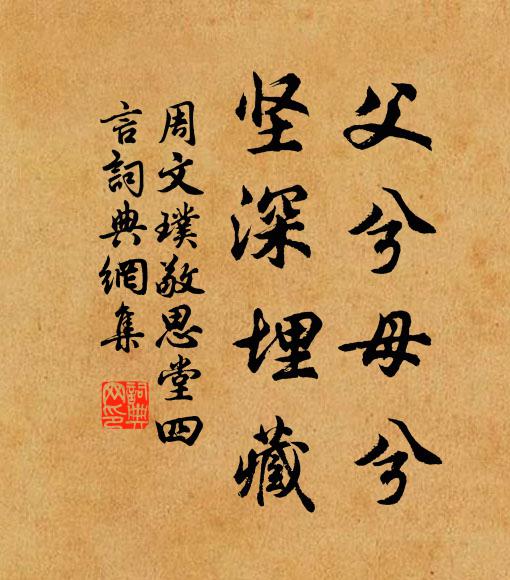 父兮母兮
坚深埋藏
周文璞敬思堂四
言詞典網集
詞典網印